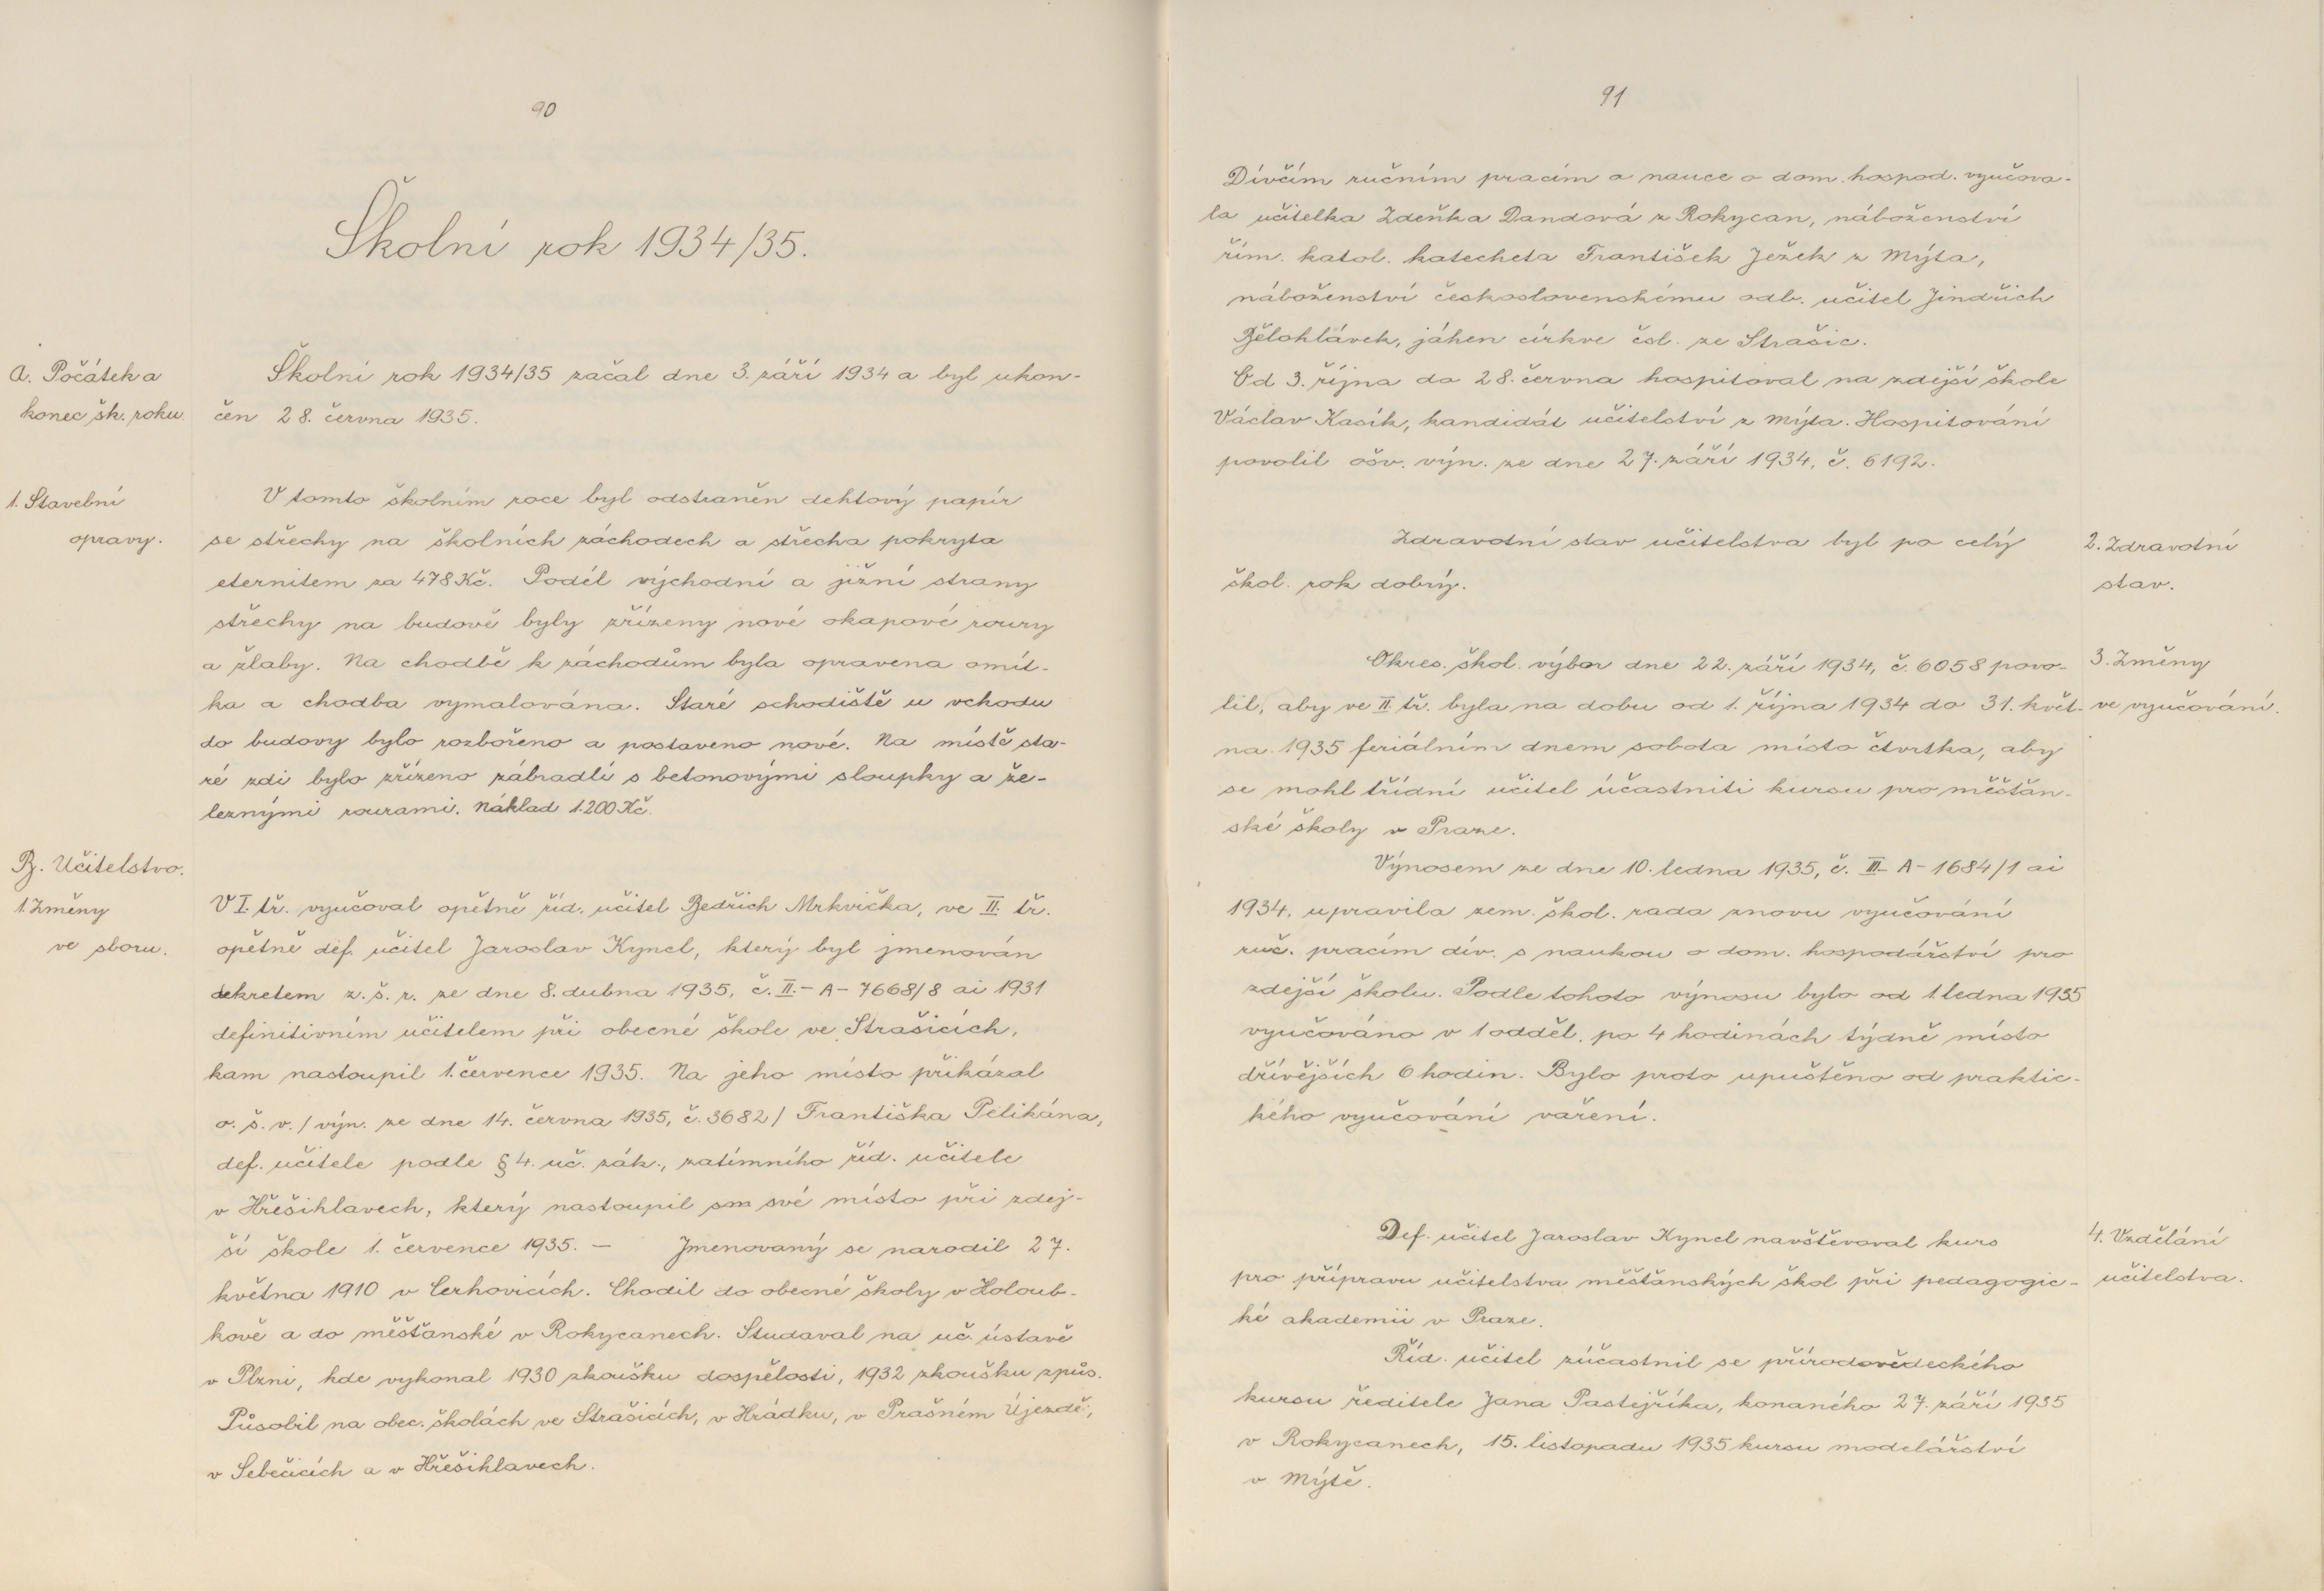 90
Školní rok 1934/35.
A. Počátek a
konec šk. roku.
Školní rok 1934/35 začal dne 3. září 1934 a byl ukon-
čen 28. června 1935.
1. Stavební
opravy.
V tomto školním roce byl odstraněn dehtový papír
se střechy na školních záchodech a střecha pokryta
eternitem za 478 Kč. Podél východní a jižní strany
střechy na budově byly zřízeny nové okapové roury
a žlaby. Na chodbě k záchodům byla opravena omít-
ka a chodba vymalována. Staré schodiště u vchodu
do budovy bylo rozbořeno a postaveno nové. Na místě sta-
ré zdi bylo zřízeno zábradlí s betonovými sloupky a že-
leznými rourami. Náklad 1.200 Kč.
B. Učitelstvo.
1. Změny
ve sboru.
V I. tř. vyučoval opětně říd. učitel Bedřich Mrkvička, ve II. tř.
opětně def. učitel Jaroslav Kyncl, který byl jmenován
dekretem z. š. r. ze dne 8. dubna 1935, č. II. - A - 7668/8 ai 1931
definitivním učitelem při obecné škole ve Strašicích,
kam nastoupil 1. července 1935. Na jeho místo přikázal
o. š. v. / výn. ze dne 14. června 1935, č. 3682 / Františka Pelikána,
def. učitele podle § 4. uč. zák., zatímního říd. učitele
v Hřešihlavech, který nastoupil své místo při zdej-
ší škole 1. července 1935. — Jmenovaný se narodil 27.
května 1910 v Cerhovicích. Chodil do obecné školy v Holoub-
kově a do měšťanské v Rokycanech. Studoval na uč. ústavě
v Plzni, kde vykonal 1930 zkoušku dospělosti, 1932 zkoušku způs.
Působil na obec. školách ve Strašicích, v Hrádku, v Prašném Újezdě,
v Sebečicích a v Hřešihlavech.
91
Dívčím ručním pracím a nauce o dom. hospod. vyučova-
la učitelka Zdeňka Dandová z Rokycan, náboženství
řím. katol. katecheta František Ježek z Mýta,
náboženství československému odb. učitel Jindřich
Bělohlávek, jáhen církve čsl. ze Strašic.
Od 3. října do 28. června hospitoval na zdejší škole
Václav Kasík, kandidát učitelství z Mýta. Hospitování
povolil ošv. výn. ze dne 27. září 1934, č. 6192.
Zdravotní stav učitelstva byl po celý
škol. rok dobrý.
2. Zdravotní
stav.
Okres. škol. výbor dne 22. září 1934, č. 6058 povo-
lil, aby ve II. tř. byla na dobu od 1. října 1934 do 31. květ-
na 1935 feriálním dnem sobota místo čtvrtka, aby
se mohl třídní učitel účastniti kursu pro měšťan-
ské školy v Praze.
3. Změny
ve vyučování.
Výnosem ze dne 10. ledna 1935, č. II - A - 1684/1 ai
1934, upravila zem. škol. rada znovu vyučování
ruč. pracím dív. s naukou o dom. hospodářství pro
zdejší školu. Podle tohoto výnosu bylo od 1. ledna 1935
vyučováno v 1 odděl. po 4 hodinách týdně místo
dřívějších 6 hodin. Bylo proto upuštěno od praktic-
kého vyučování vaření.
Def. učitel Jaroslav Kyncl navštěvoval kurs
pro přípravu učitelstva měšťanských škol při pedagogic-
ké akademii v Praze.
4. Vzdělání
učitelstva.
Říd. učitel zúčastnil se přírodovědeckého
kursu ředitele Jana Pastejříka, konaného 27. září 1935
v Rokycanech, 15. listopadu 1935 kursu modelářství
v Mýtě.